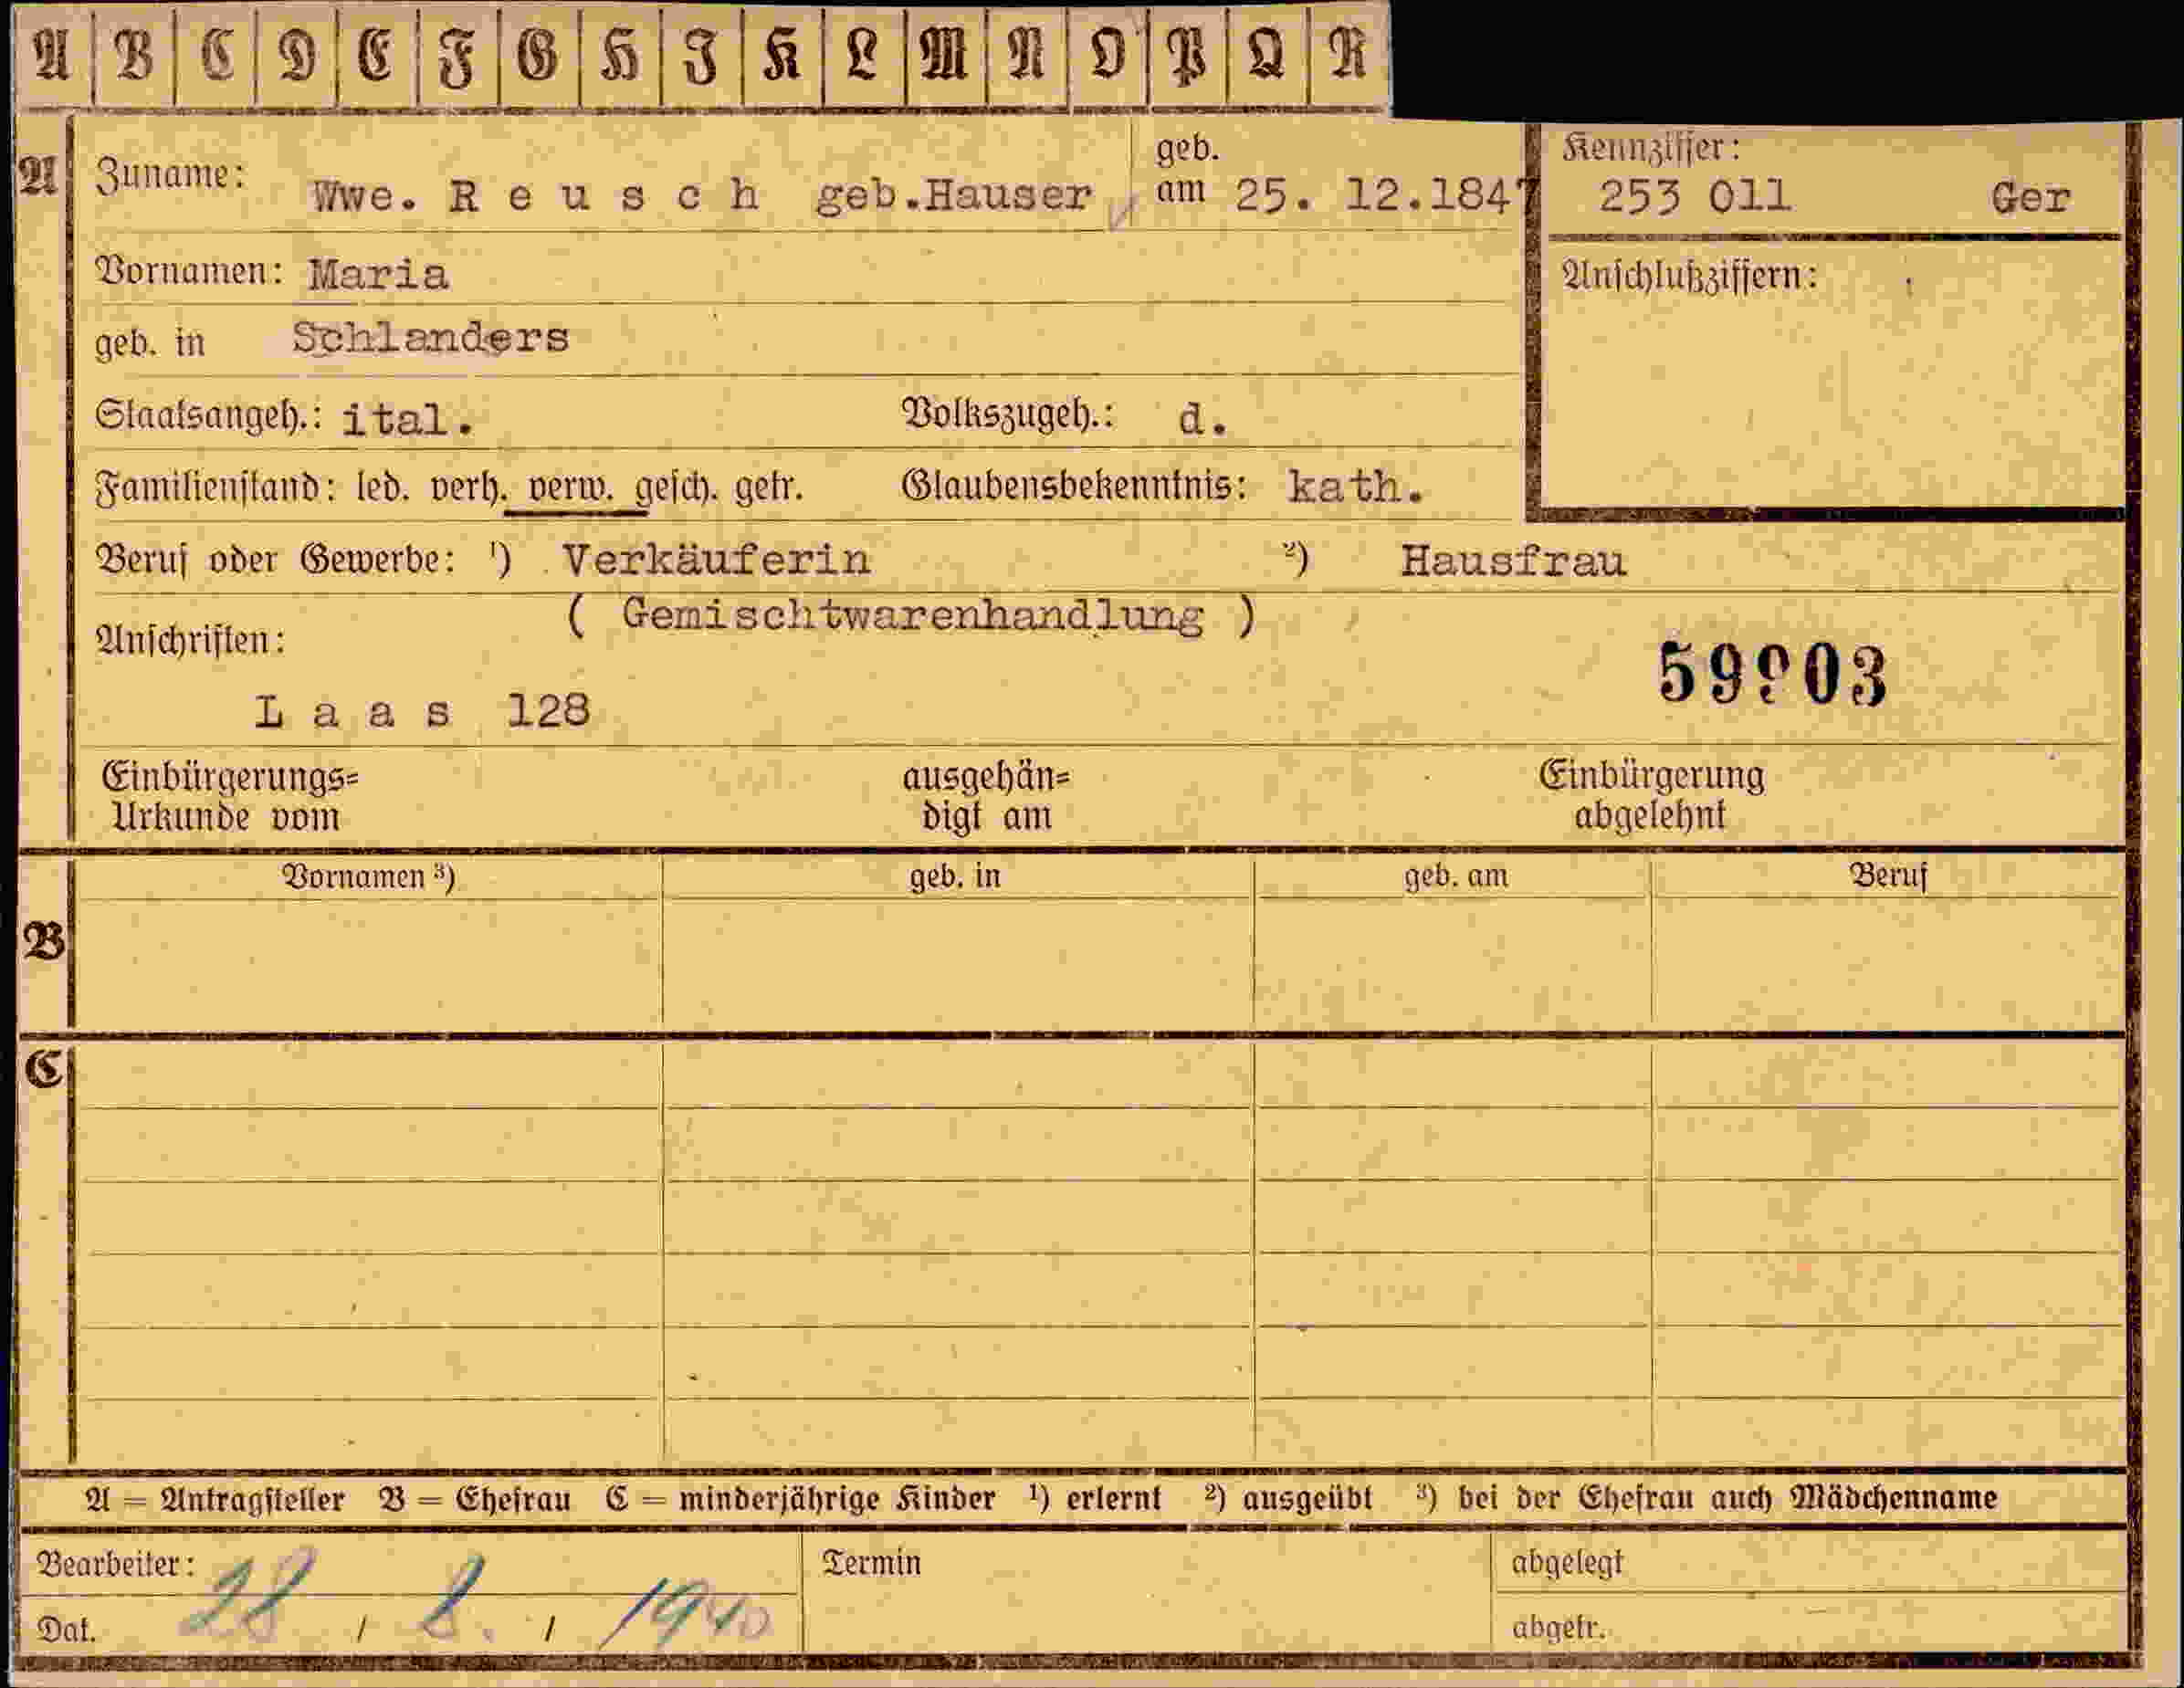 A B C D E F G H I K L M N O P Q R
A Zuname: Wwe. R e u s c h geb.Hauser geb. am 25. 12.1847 Kennziffer: 253 011 Ger
Vornamen: Maria Anschlußziffern:
geb. in Schlanders
Staatsangeh.: ital. Volkszugeh.: d.
Familienstand: led. verh. verw. gesch. getr. Glaubensbekenntnis: kath.
Beruf oder Gewerbe: ¹) Verkäuferin ²) Hausfrau
( Gemischtwarenhandlung )
Anschriften:
L a a s 128
Einbürgerungs= ausgehän= Einbürgerung
Urkunde vom digt am abgelehnt
Vornamen ³) geb. in geb. am Beruf
B
C
A = Antragsteller B = Ehefrau C = minderjährige Kinder ¹) erlernt ²) ausgeübt ³) bei der Ehefrau auch Mädchenname
Bearbeiter: Termin abgelegt
Dat. 28 / 8. / 1940 abgetr.